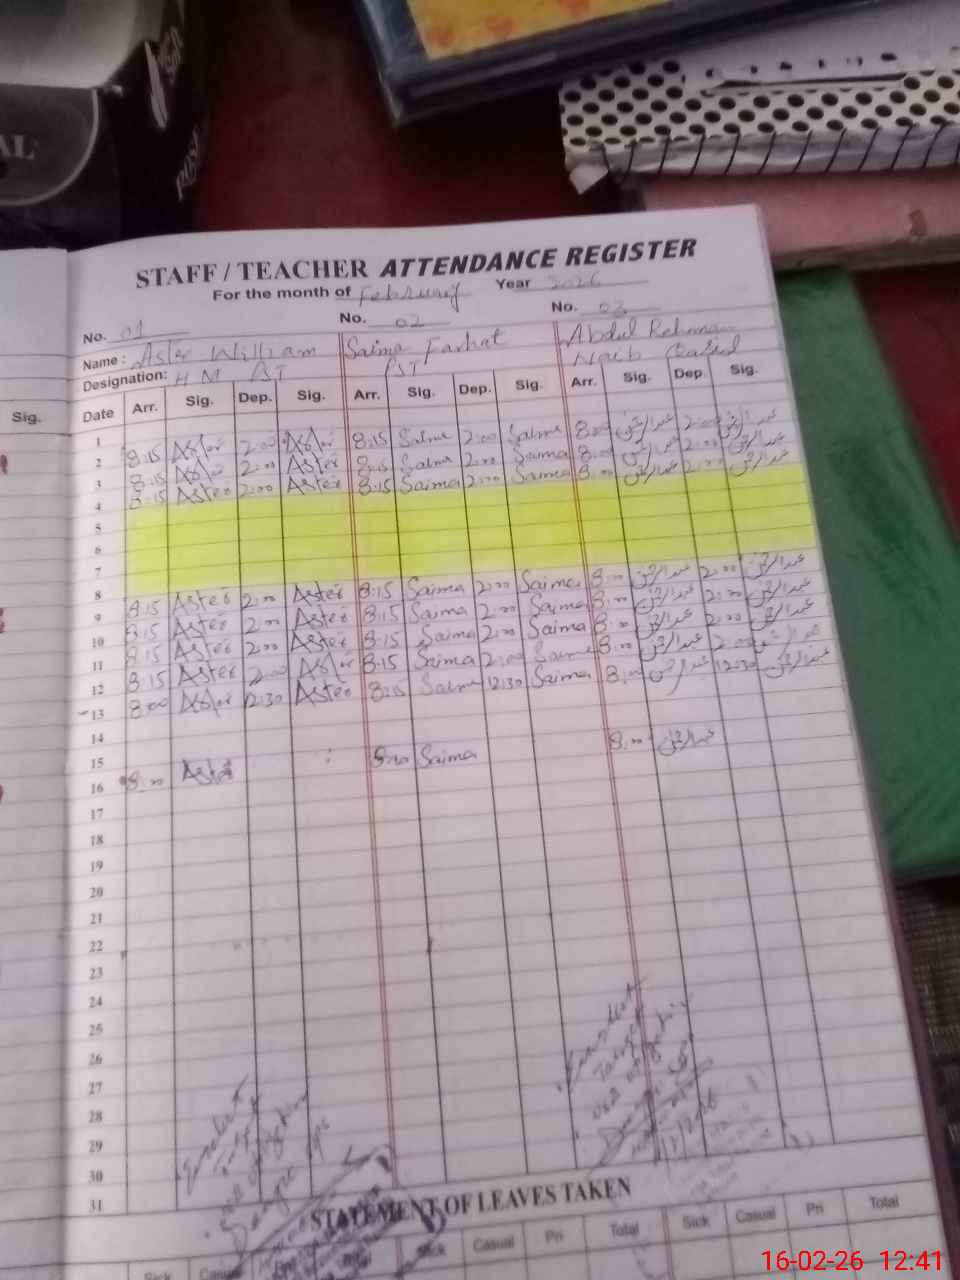 STAFF / TEACHER ATTENDANCE REGISTER
For the month of February Year 2026
No. 01 No. 02 No. 03
Name : Aster William Saima Farhat Abdul Rehman
Designation: H M PST PST Naib Qasid
Date Arr. Sig. Dep. Sig. Arr. Sig. Dep. Sig. Arr. Sig. Dep. Sig.
1
2 8:15 Aster 2:00 Aster 8:15 Saima 2:00 Saima 8:00 عبدالرحمن 2:00 عبدالرحمن
3 8:15 Aster 2:00 Aster 8:15 Saima 2:00 Saima 8:00 عبدالرحمن 2:00 عبدالرحمن
4 8:15 Aster 2:00 Aster 8:15 Saima 2:00 Saima 8:00 عبدالرحمن 2:00 عبدالرحمن
5
6
7
8
9 8:15 Aster 2:00 Aster 8:15 Saima 2:00 Saima 8:00 عبدالرحمن 2:00 عبدالرحمن
10 8:15 Aster 2:00 Aster 8:15 Saima 2:00 Saima 8:00 عبدالرحمن 2:00 عبدالرحمن
11 8:15 Aster 2:00 Aster 8:15 Saima 2:00 Saima 8:00 عبدالرحمن 2:00 عبدالرحمن
12 8:15 Aster 2:00 Aster 8:15 Saima 2:00 Saima 8:00 عبدالرحمن 2:00 عبدالرحمن
13 8:00 Aster 12:30 Aster 8:15 Saima 12:30 Saima 8:00 عبدالرحمن 12:30 عبدالرحمن
14
15
16 8:00 Aster 8:00 Saima 8:00 عبدالرحمن
17
18
19
20
21
22
23
24
25
26
27
28
29
30
31
STATEMENT OF LEAVES TAKEN
Sick Total Sick Casual Pri Total Sick Casual Pri Total
Sig.
16-02-26 12:41